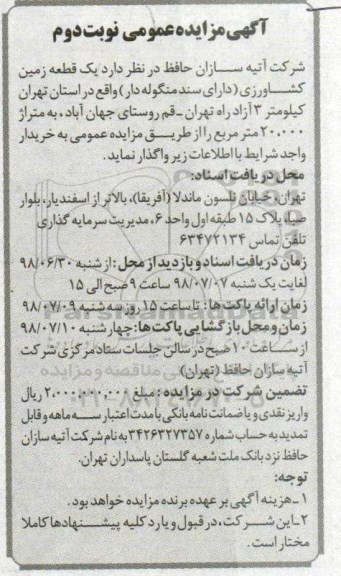 آگهی مزایده عمومی نوبت دوم
شرکت آتیه سازان حافظ در نظر دارد یک قطعه زمین
کشاورزی (دارای سند منگوله دار) واقع در استان تهران
کیلومتر ۳ آزاد راه تهران - قم روستای جهان آباد، به متراژ
۲۰،۰۰۰ متر مربع را از طریق مزایده عمومی به خریدار
واجد شرایط با اطلاعات زیر واگذار نماید.
محل دریافت اسناد:
تهران، خیابان نلسون ماندلا (آفریقا)، بالاتر از اسفندیار، بلوار
صبا، پلاک ۱۵ طبقه اول واحد ۶، مدیریت سرمایه گذاری
تلفن تماس ۶۳۴۷۲۱۳۴
زمان دریافت اسناد و بازدید از محل: از شنبه ۹۸/۰۶/۳۰
لغایت یک شنبه ۹۸/۰۷/۰۷ ساعت ۹ صبح الی ۱۵
زمان ارائه پاکت ها: تا ساعت ۱۵ روز سه شنبه ۹۸/۰۷/۰۹
زمان و محل بازگشایی پاکت ها: چهار شنبه ۹۸/۰۷/۱۰
از ساعت ۱۰ صبح در سالن جلسات ستاد مرکزی شرکت
آتیه سازان حافظ (تهران)
تضمین شرکت در مزایده: مبلغ ۲،۰۰۰،۰۰۰،۰۰۰ ریال
واریز نقدی و یا ضمانت نامه بانکی با مدت اعتبار سه ماهه و قابل
تمدید به حساب شماره ۳۴۲۶۳۲۷۳۵۷ به نام شرکت آتیه سازان
حافظ نزد بانک ملت شعبه گلستان پاسداران تهران.
توجه:
۱- هزینه آگهی بر عهده برنده مزایده خواهد بود.
۲- این شرکت، در قبول و یا رد کلیه پیشنهادها کاملا
مختار است.